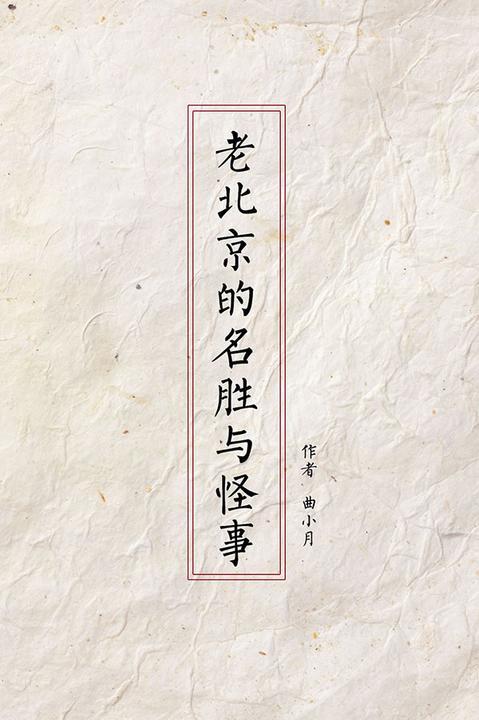 老北京的名胜与怪事
作者 曲小月